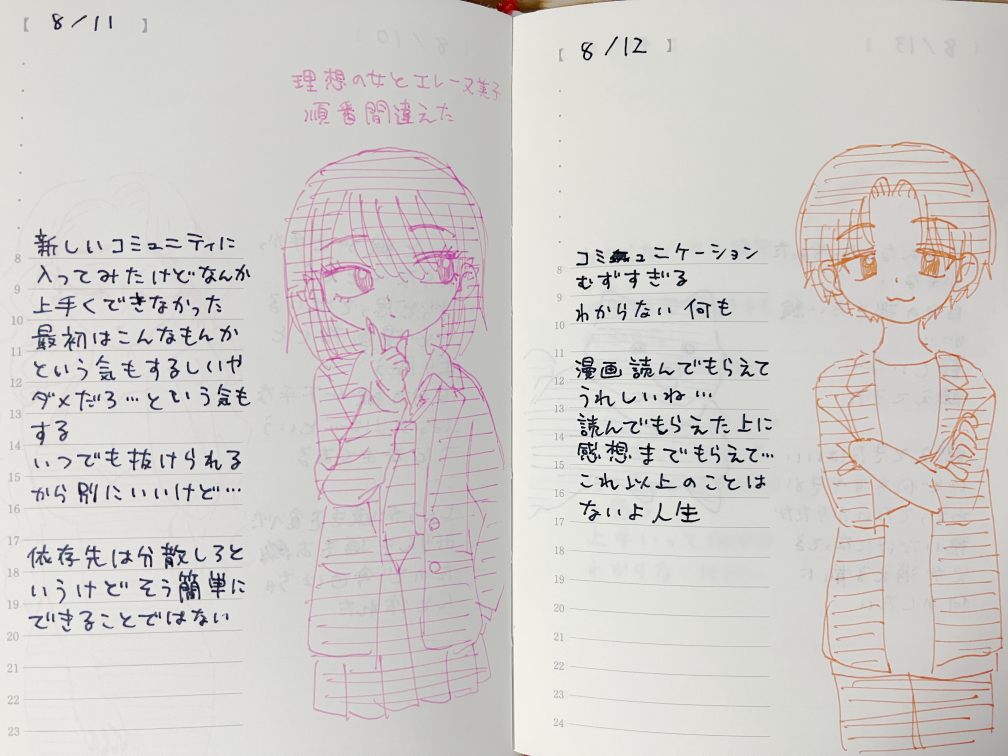 【 8/11 】
理想の女とエレーヌ美子
順番間違えた
新しいコミュニティに
入ってみたけどなんか
上手くできなかった
最初はこんなもんか
という気もするしいや
ダメだろ…という気も
する
いつでも抜けられる
から別にいいけど…
依存先は分散しろと
いうけどそう簡単に
できることではない
8
9
10
11
12
13
14
15
16
17
18
19
20
21
22
23
【 8/12 】
コミュニケーション
むずすぎる
わからない 何も
漫画読んでもらえて
うれしいね…
読んでもらえた上に
感想までもらえて…
これ以上のことは
ないよ人生
8
9
10
11
12
13
14
15
16
17
18
19
20
21
22
23
24